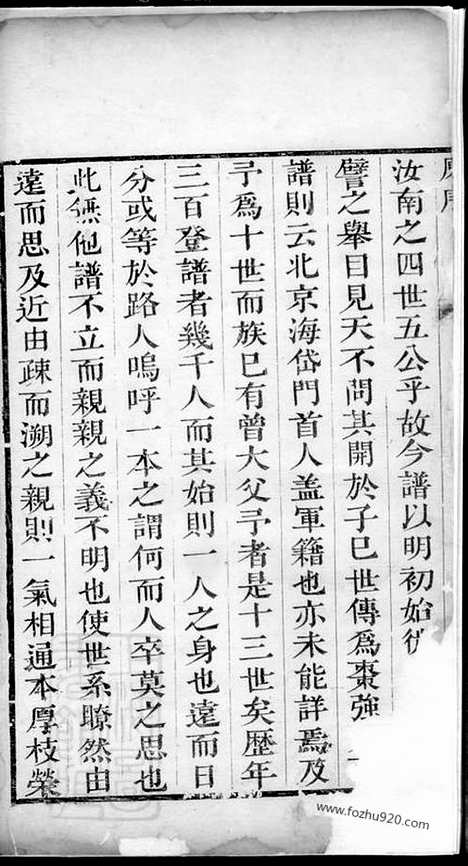 汝南之四世五公乎故今譜以明初始
譬之舉目見天不問其開於子巳世傳為棗強
譜則云北京海岱門首人盖軍籍也亦未能詳焉及
予為十世而族巳有曾大父予者是十三世矣歷年
三百登譜者幾千人而其始則一人之身也遠而日
分或等於路人嗚呼一本之謂何而人卒莫之思也
此無他譜不立而親親之義不明也使世系瞭然由
遠而思及近由疎而溯之親則一氣相通本厚枝榮
www.fozhu920.com